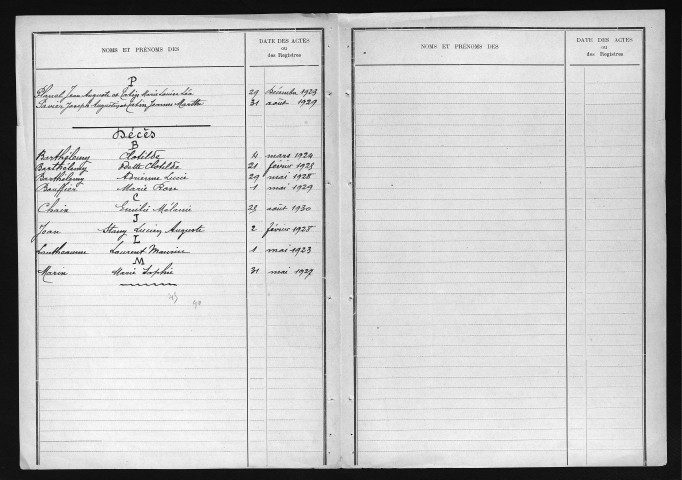 NOMS ET PRÉNOMS DES
DATE DES ACTES
ou
des Registres
P
Planel Jean Auguste et Marie Louise Léa 29 Décembre 1923
Joseph Augustin et Jeanne Marthe 31 août 1929
Décès
B
Barthélemy Clotilde 4 mars 1924
Barthélemy Odette Clotilde 21 février 1925
Barthélemy Adrienne Lucie 29 mai 1928
Marie Rose 1 mai 1929
C
Chaix Emilie Mélanie 23 août 1930
J
Jean Stany Lucien Auguste 2 février 1928
L
Lantheaume Laurent Maurice 1 mai 1923
M
Marin Marie Sophie 31 mai 1929
NOMS ET PRÉNOMS DES
DATE DES ACTES
ou
des Registres